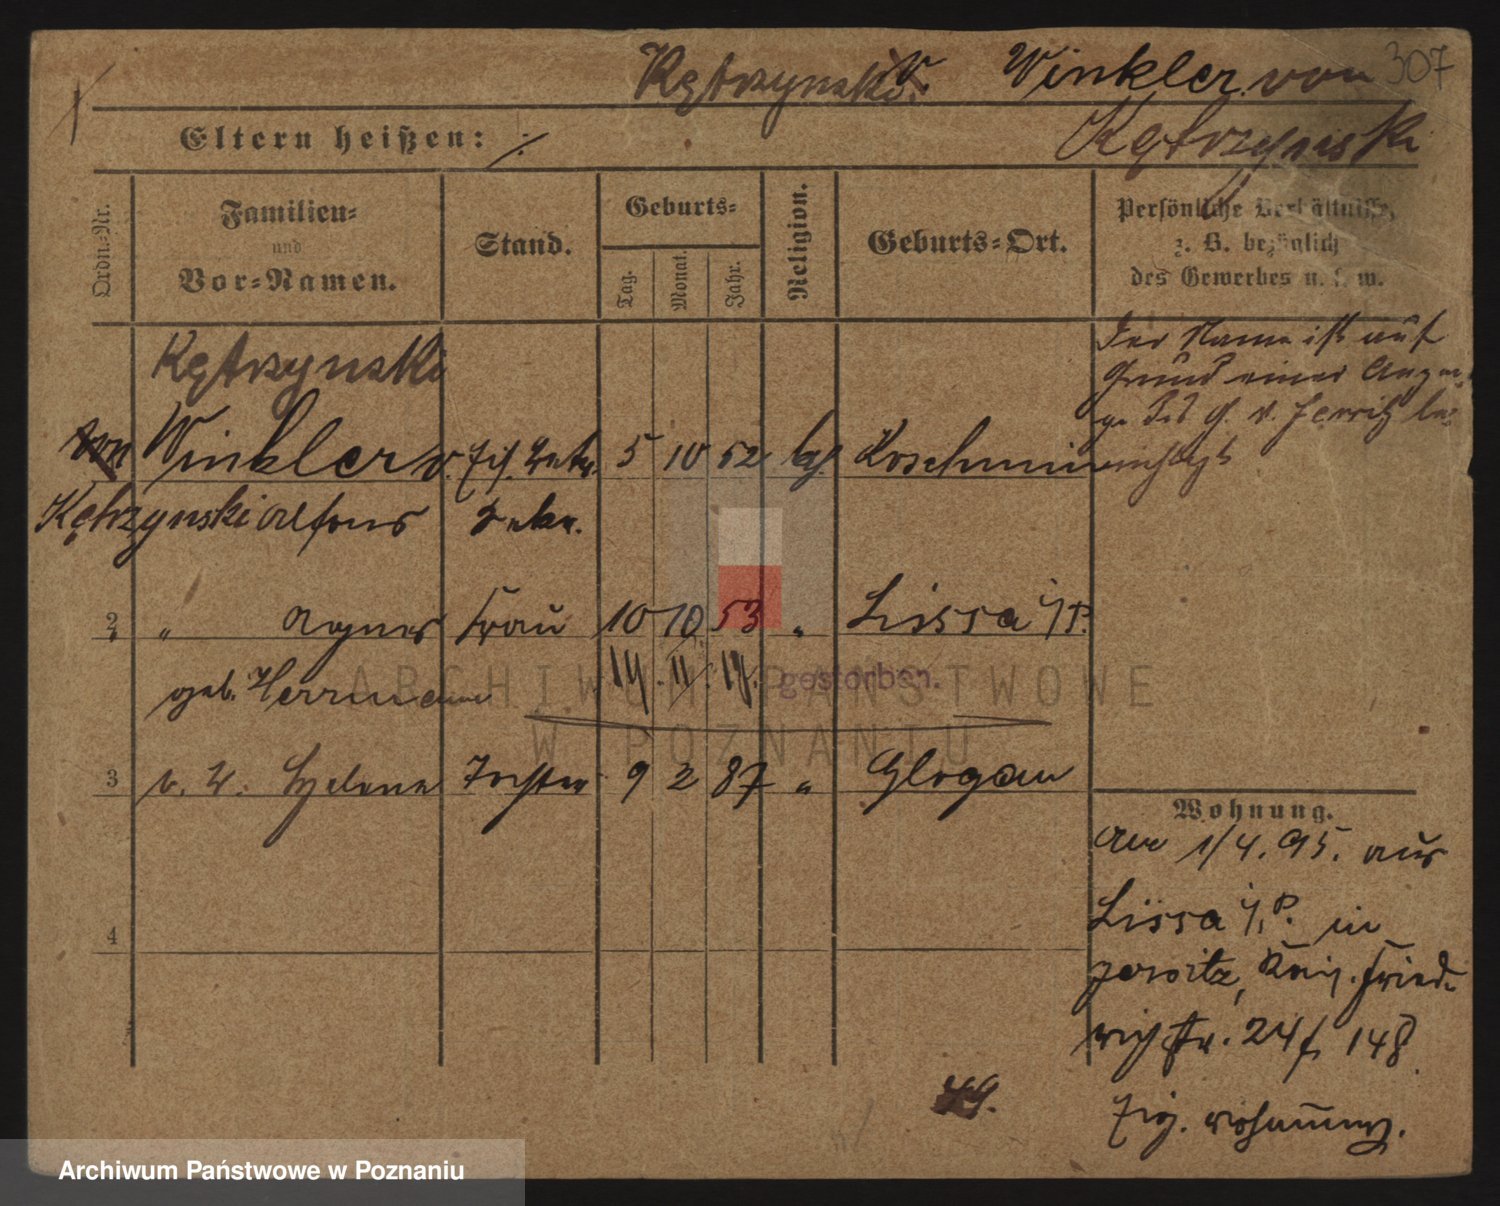 Kętrzynski v. Winkler von 307
Kętrzynski
Eltern heißen: ./.
Ordn.-Nr.
Familien-
und
Vor-Namen.
Stand.
Geburts-
Tag.
Monat.
Jahr.
Religion.
Geburts-Ort.
Persönliche Verhältnisse,
z. B. bezüglich
des Gewerbes u. s. w.
Kętrzynski
Der Name ist auf
Grund einer
von Winkler v. 5 10 52 Koschmin
Kętrzynski Alfons Sekr.
2 " Agnes Frau 10 10 53 " Lissa i/P.
geb. Herrmann 14. 11. 17. gestorben.
3 v. W. Helene Tochter 9 2 87 " Glogau
4
Wohnung.
Am 1/4. 95. aus
Lissa i/P. in
Jersitz, Kais. Fried-
richstr. 24 f 148
Eig. Wohnung.
49.
ARCHIWUM PAŃSTWOWE
W POZNANIU
Archiwum Państwowe w Poznaniu